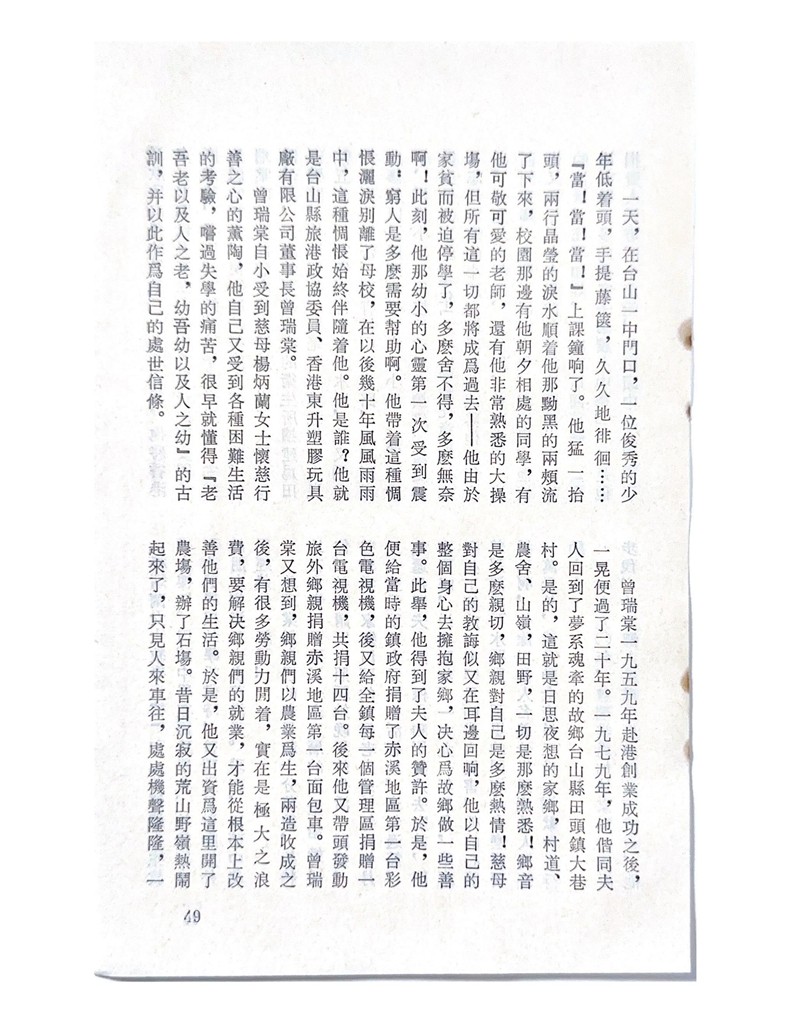 一天，在台山一中門口，一位俊秀的少
年低着頭，手提藤篋，久久地徘徊……
『當！當！當！』上課鐘响了。他猛一抬
頭，兩行晶瑩的淚水順着他那黝黑的兩頰流
了下來，校園那邊有他朝夕相處的同學，有
他可敬可愛的老師，還有他非常熟悉的大操
塲，但所有這一切都將成爲過去——他由於
家貧而被迫停學了，多麽舍不得，多麽無奈
啊！此刻，他那幼小的心靈第一次受到震
動：窮人是多麽需要幫助啊。他帶着這種惆
悵灑淚別離了母校，在以後幾十年風風雨雨
中，這種惆悵始終伴隨着他。他是誰？他就
是台山縣旅港政協委員、香港東升塑膠玩具
廠有限公司董事長曾瑞棠。
曾瑞棠自小受到慈母楊炳蘭女士懷慈行
善之心的薰陶，他自己又受到各種困難生活
的考驗，嚐過失學的痛苦，很早就懂得『老
吾老以及人之老，幼吾幼以及人之幼』的古
訓，并以此作爲自己的處世信條。
曾瑞棠一九五九年赴港創業成功之後，
一晃便過了二十年。一九七九年，他偕同夫
人回到了夢系魂牽的故鄉台山縣田頭鎮大巷
村。是的，這就是日思夜想的家鄉，村道、
農舍、山嶺，田野，一切是那麽熟悉！鄉音
是多麽親切，鄉親對自己是多麽熱情！慈母
對自己的教誨似又在耳邊回响，他以自己的
整個身心去擁抱家鄉，决心爲故鄉做一些善
事。此舉，他得到了夫人的贊許。於是，他
便給當時的鎮政府捐贈了赤溪地區第一台彩
色電視機，後又給全鎮每一個管理區捐贈一
台電視機，共捐十四台。後來他又帶頭發動
旅外鄉親捐贈赤溪地區第一台面包車。曾瑞
棠又想到，鄉親們以農業爲生，兩造收成之
後，有很多勞動力閒着，實在是極大之浪
費，要解決鄉親們的就業，才能從根本上改
善他們的生活。於是，他又出資爲這里開了
農塲，辦了石塲。昔日沉寂的荒山野嶺熱鬧
起來了，只見人來車往，處處機聲隆隆，一
49